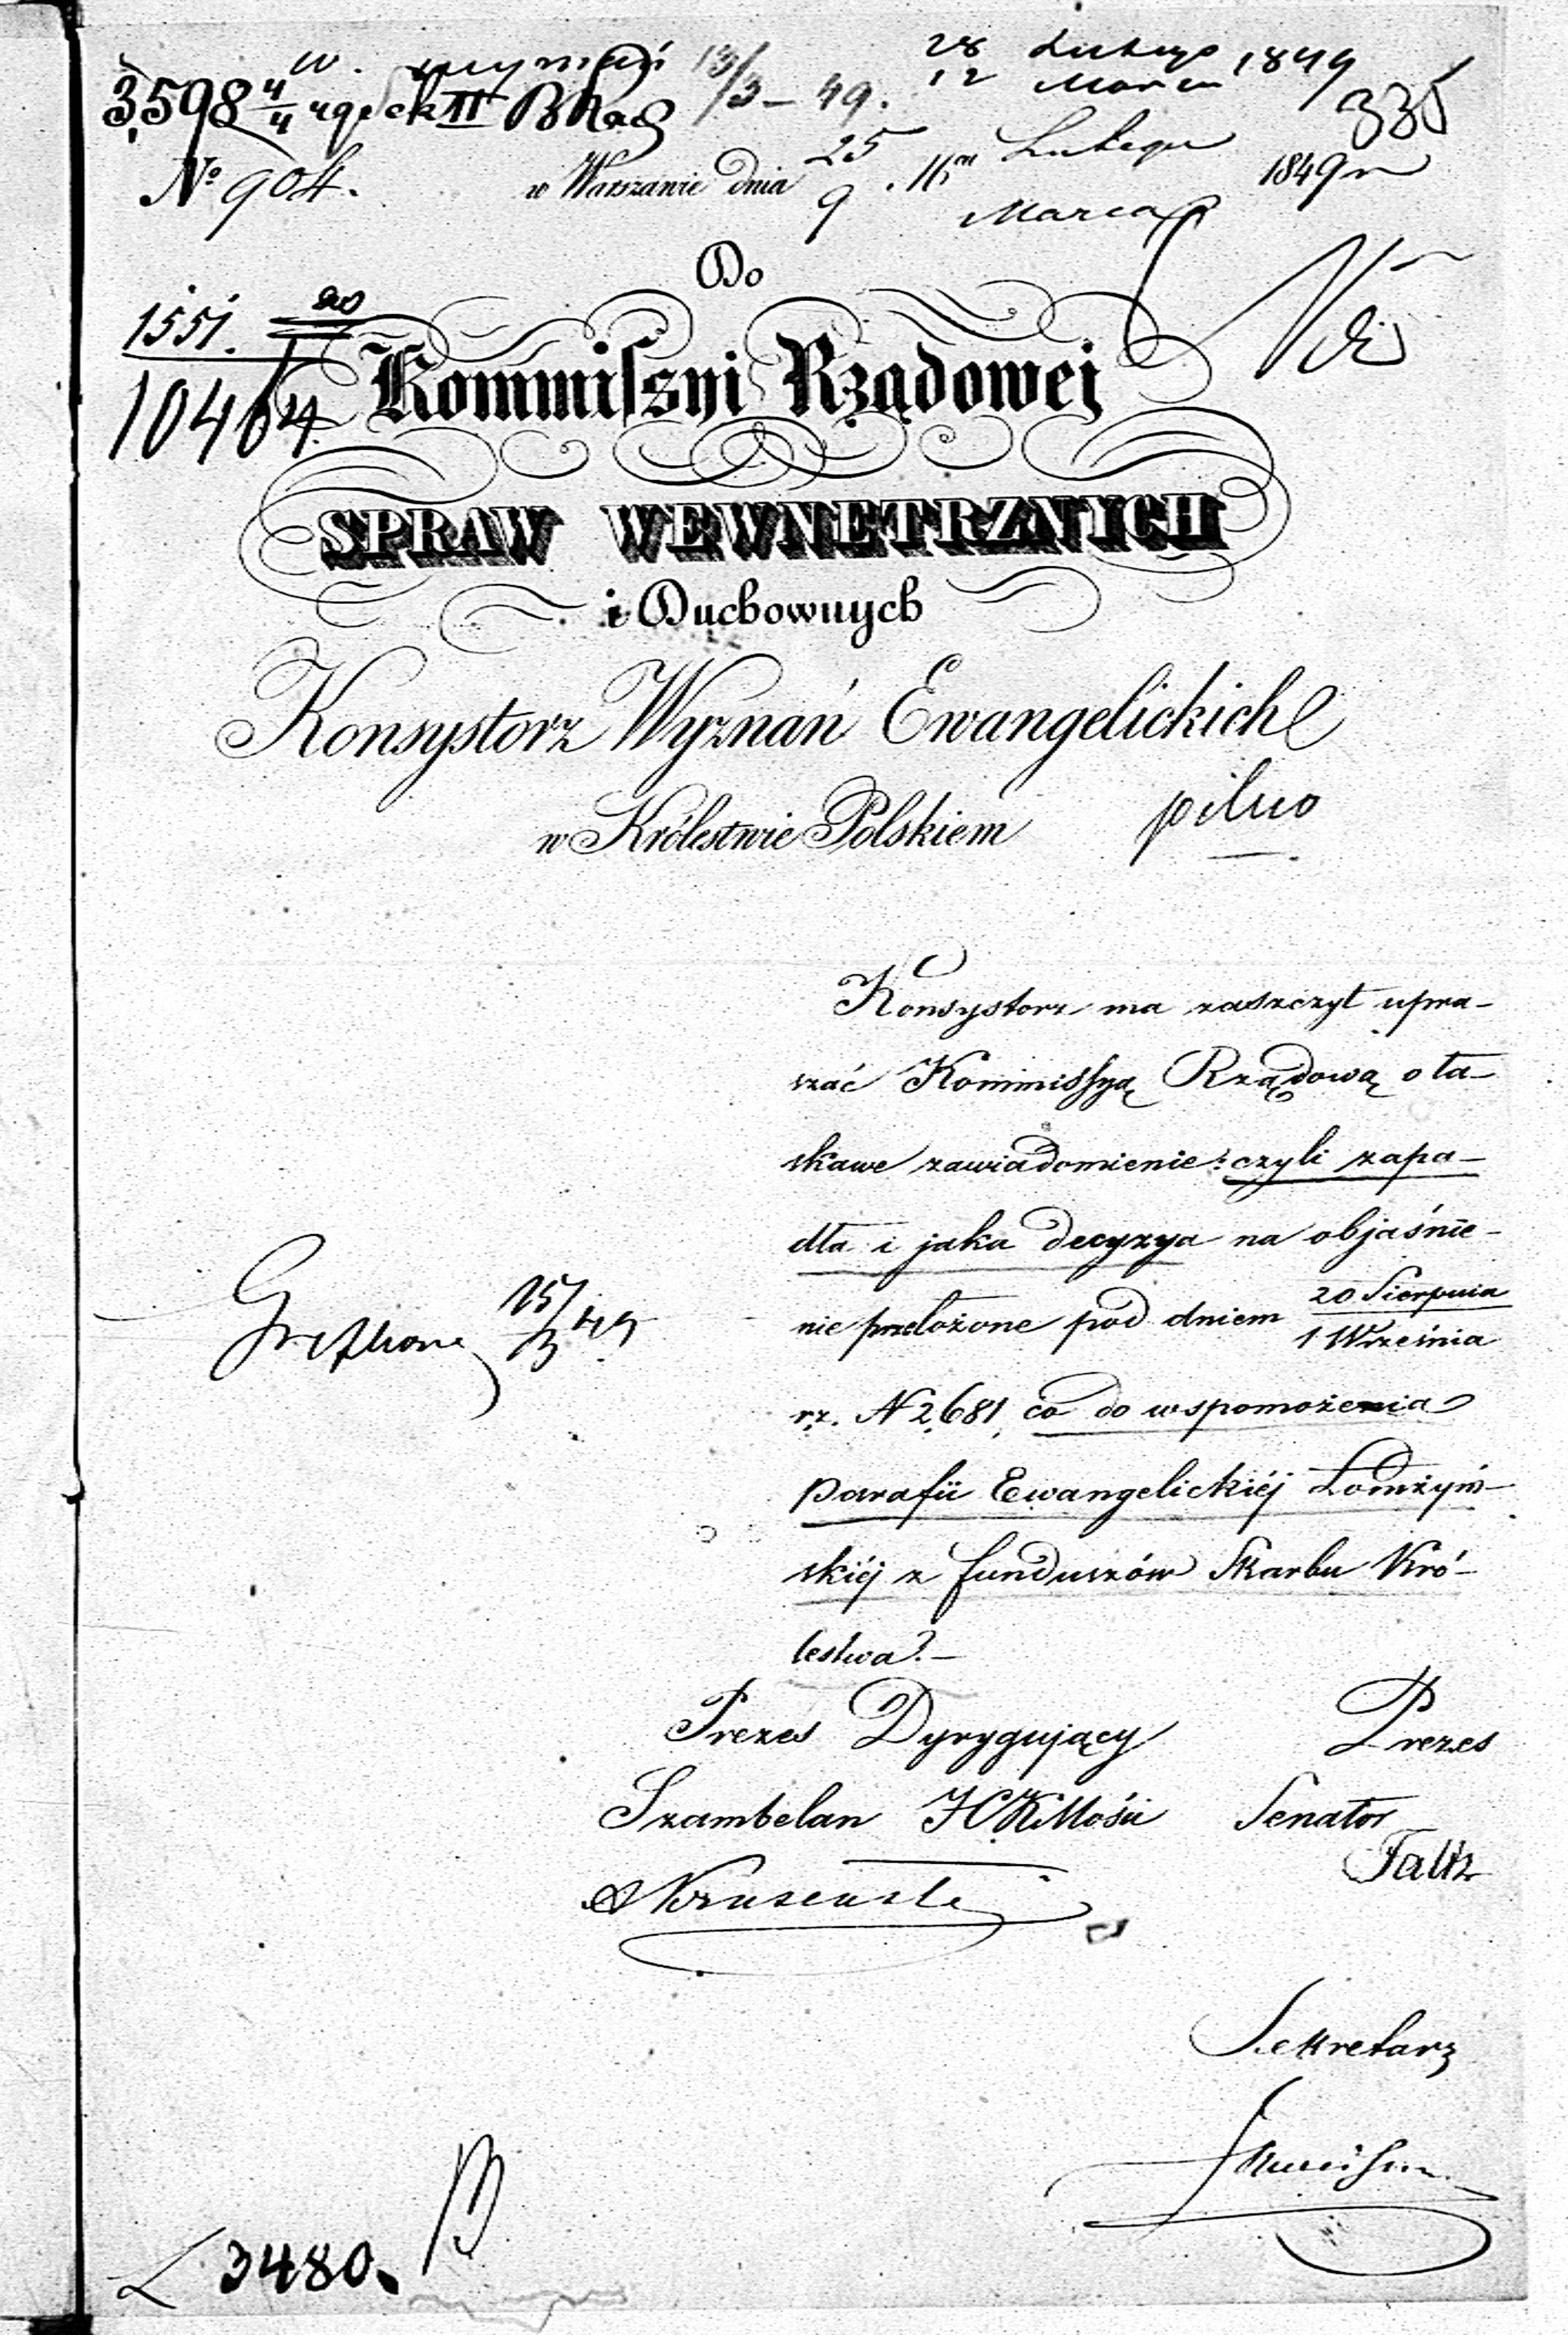 28 Lutego 1849
12 Marca
3,598 4/4 49 13/3 – 49. 335
25 Lutego
No 904. w Warszawie dnia 9 Marca 1849 r
Do
1551.
10464
Kommissyi Rządowej
SPRAW WEWNĘTRZNYCH
i Duchownych
Konsystorz Wyznań Ewangelickich
w Królestwie Polskiem
pilno
Konsystorz ma zaszczyt upra-
szać Kommissyą Rządową o ła-
skawe zawiadomienie: czyli zapa-
dła i jaka decyzya na objaśnie-
nie przełożone pod dniem 20 Sierpnia
1 Września
15/3 49
rz. N 2,681, co do wspomożenia
parafii Ewangelickiéj Łomżyń-
skiéj z funduszów Skarbu Kró-
lestwa?–
Prezes Dyrygujący Prezes
Szambelan JCKMości Senator
Faltz
Sekretarz
L 3480.